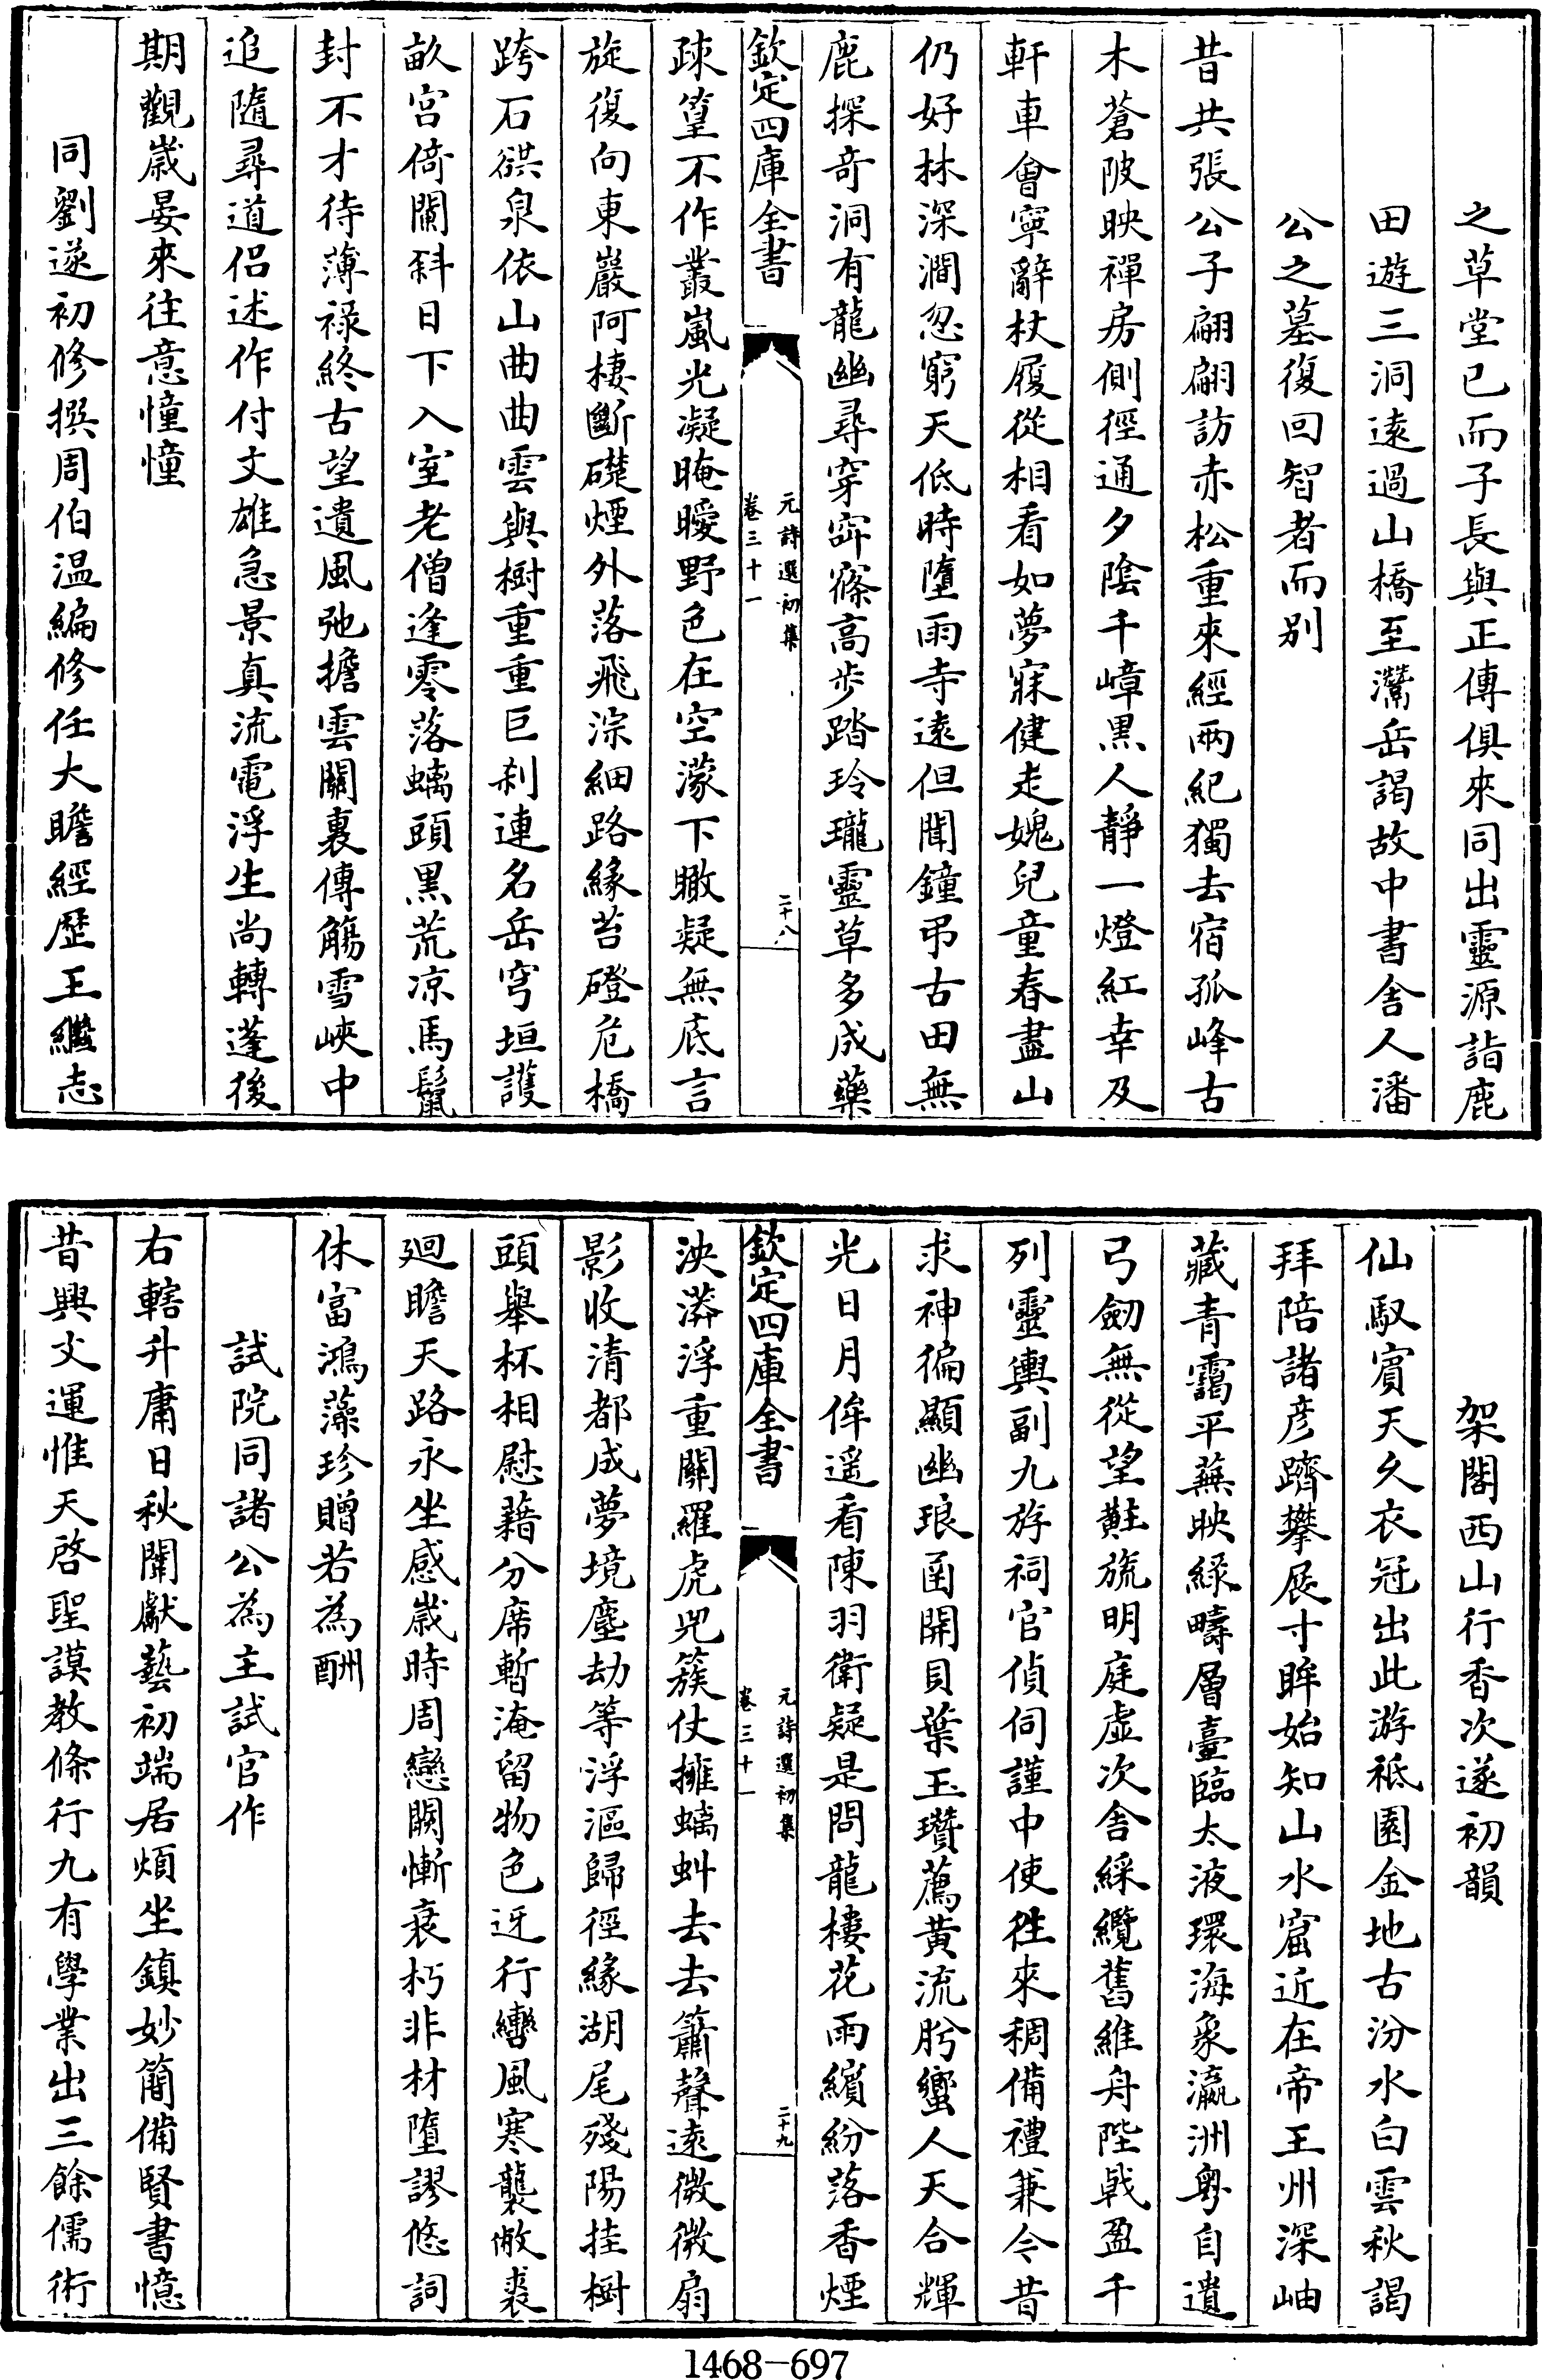 之草堂已而子長與正傳俱來同出靈源詣鹿
田遊三洞遠過山橋至潛岳謁故中書舍人潘
公之墓復回智者而别
昔共張公子翩翩訪赤松重來經兩紀獨去宿孤峰古
木蒼陂映禪房側徑通夕陰千嶂黒人靜一燈紅幸及
軒車會寧辭杖履從相看如夢寐健走媿兒童春盡山
仍好林深澗忽窮天低時墮雨寺遠但聞鐘弔古田無
鹿探奇洞有龍幽尋穿窈窱高歩踏玲瓏靈草多成藥
欽定四庫全書
元詩選初集
卷三十一
二十八
疎篁不作叢嵐光凝晻曖野色在空濛下瞰疑無底言
旋復向東巖阿棲斷礎煙外落飛淙細路緣苔磴危橋
跨石谼泉依山曲曲雲與樹重重巨刹連名岳穹垣護
畝宮倚闌斜日下入室老僧逢零落螭頭黒荒凉馬鬛
封不才待薄禄終古望遺風弛擔雲關裏傳觴雪峽中
追隨尋道侣述作付文雄急景真流電浮生尚轉蓬後
期觀歳晏來往意憧憧
同劉遂初修撰周伯温編修任大瞻經歷王繼志
架閣西山行香次遂初韻
仙馭賓天久衣冠出此游祗園金地古汾水白雲秋謁
拜陪諸彦躋攀展寸眸始知山水窟近在帝王州深岫
藏青靄平蕪映緑疇層臺臨太液環海象瀛洲粤自遺
弓劒無從望黈旒明庭虚次舍綵纜舊維舟陛㦸盈千
列靈輿副九斿祠官偵伺謹中使徃來稠備禮兼今昔
求神徧顯幽琅函開貝葉玉瓚薦黄流肹蠁人天合輝
光日月侔遥看陳羽衛疑是問龍樓花雨繽紛落香煙
欽定四庫全書
元詩選初集
卷三十一
二十九
泱漭浮重關羅虎兕簇仗擁螭虯去去簫聲遠微微扇
影收清都成夢境塵劫等浮漚歸徑緣湖尾殘陽挂樹
頭舉杯相慰藉分席暫淹留物色迓行轡風寒襲敝裘
廻瞻天路永坐感歳時周戀闕慚衰朽非材墮謬悠詞
休富鴻藻珍贈若為酬
試院同諸公為主試官作
右轄升庸日秋闈獻藝初端居煩坐鎮妙簡備賢書憶
昔興文運惟天啓聖謨教條行九有學業出三餘儒術
1468-697